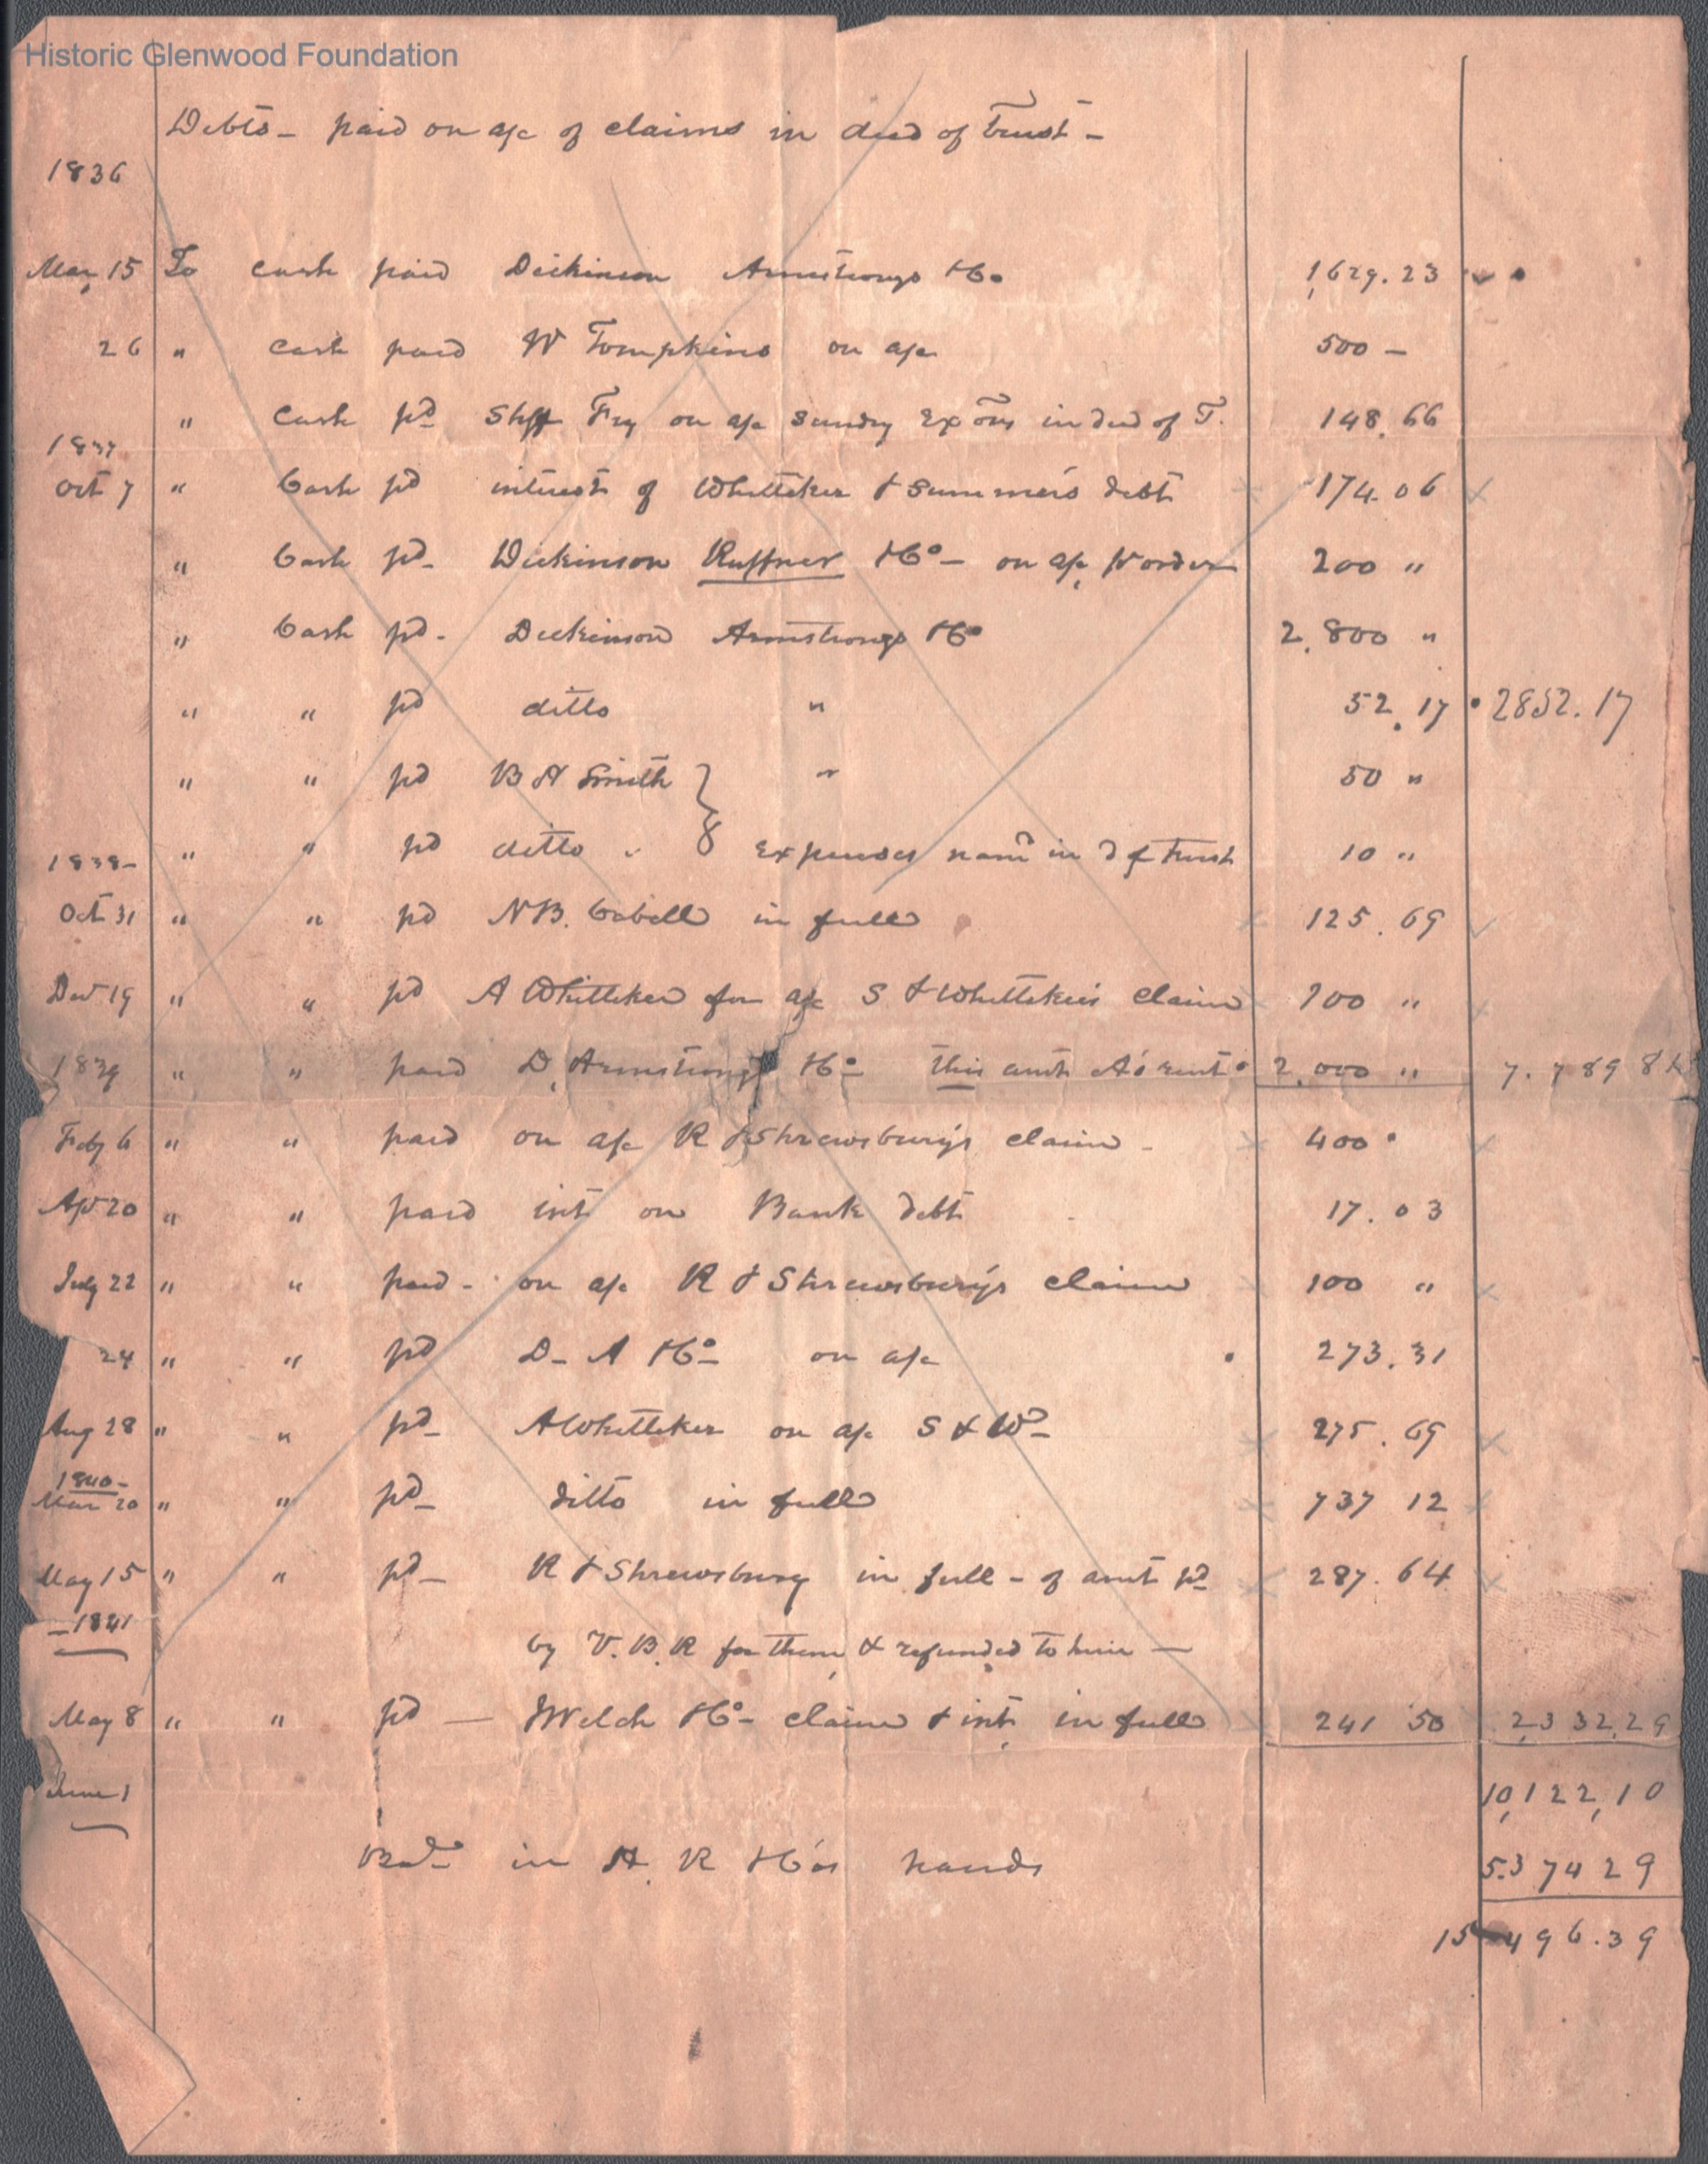 Historic Glenwood Foundation
Debts - paid on a/c of claims in deed of Trust -
1836
May 15 To cash paid Dickinson Armstrong & Co 1,629.23
26 " cash paid W Tompkins on a/c 500 -
" Cash pd Shff Fry on a/c sundry Exons in deed of T. 148.66
1837
Oct 7 " Cash pd interest of Whitteker & Summers debt 174.06
" Cash pd - Dickinson Ruffner & Co - on a/c pr order 200 "
" Cash pd - Dickinson Armstrong & Co 2,800 "
" " pd ditto " 52.17 2852.17
" " pd B H Smith " 50 "
" " pd ditto " Expenses nam'd in d of Trust 10 "
1838 -
Oct 31 " " pd N B. Cabell in full 125.69
Dec 19 " " pd A Whitteker for a/c S & Whitteker's claim 100 "
1839 " " paid D, Armstrong & Co - This amt A's rent 2,000 " 7.789 8
Feby 6 " " paid on a/c R & Shrewsbury's claim - 400
Apr 20 " " paid int on Bank debt 17.03
July 22 " " paid - on a/c R & Shrewsbury's claim 100 "
24 " " pd D - A & Co - on a/c 273.31
Aug 28 " " pd - A Whitteker on a/c S & W - 275.69
1840 -
Mar 20 " " pd - ditto in full 737 12
May 15 " " pd - R & Shrewsbury in full - of amt pd 287.64
- 1841
by V. B. R for them, & refunded to him -
May 8 " " pd - Welch & Co - claim & int in full 241 50 2,332.29
June 1 10,122,10
Bal in H. R & Co's hands 5.374 29
15 496.39